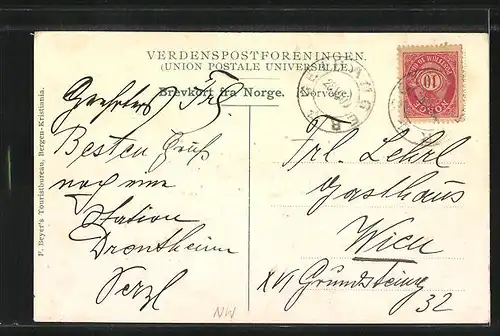 VERDENSPOSTFORENINGEN.
(UNION POSTALE UNIVERSELLE.)
Brevkort fra Norge. (Norvège).
F. Beyer's Touristbureau, Bergen-Kristiania.
Geehrtes Frl.
Besten Gruß
noch eine
Station
Drontheim
Frl. Lehrl
Gasthaus
Wien
XVI Grundsteing
32
NW
10
NORGE